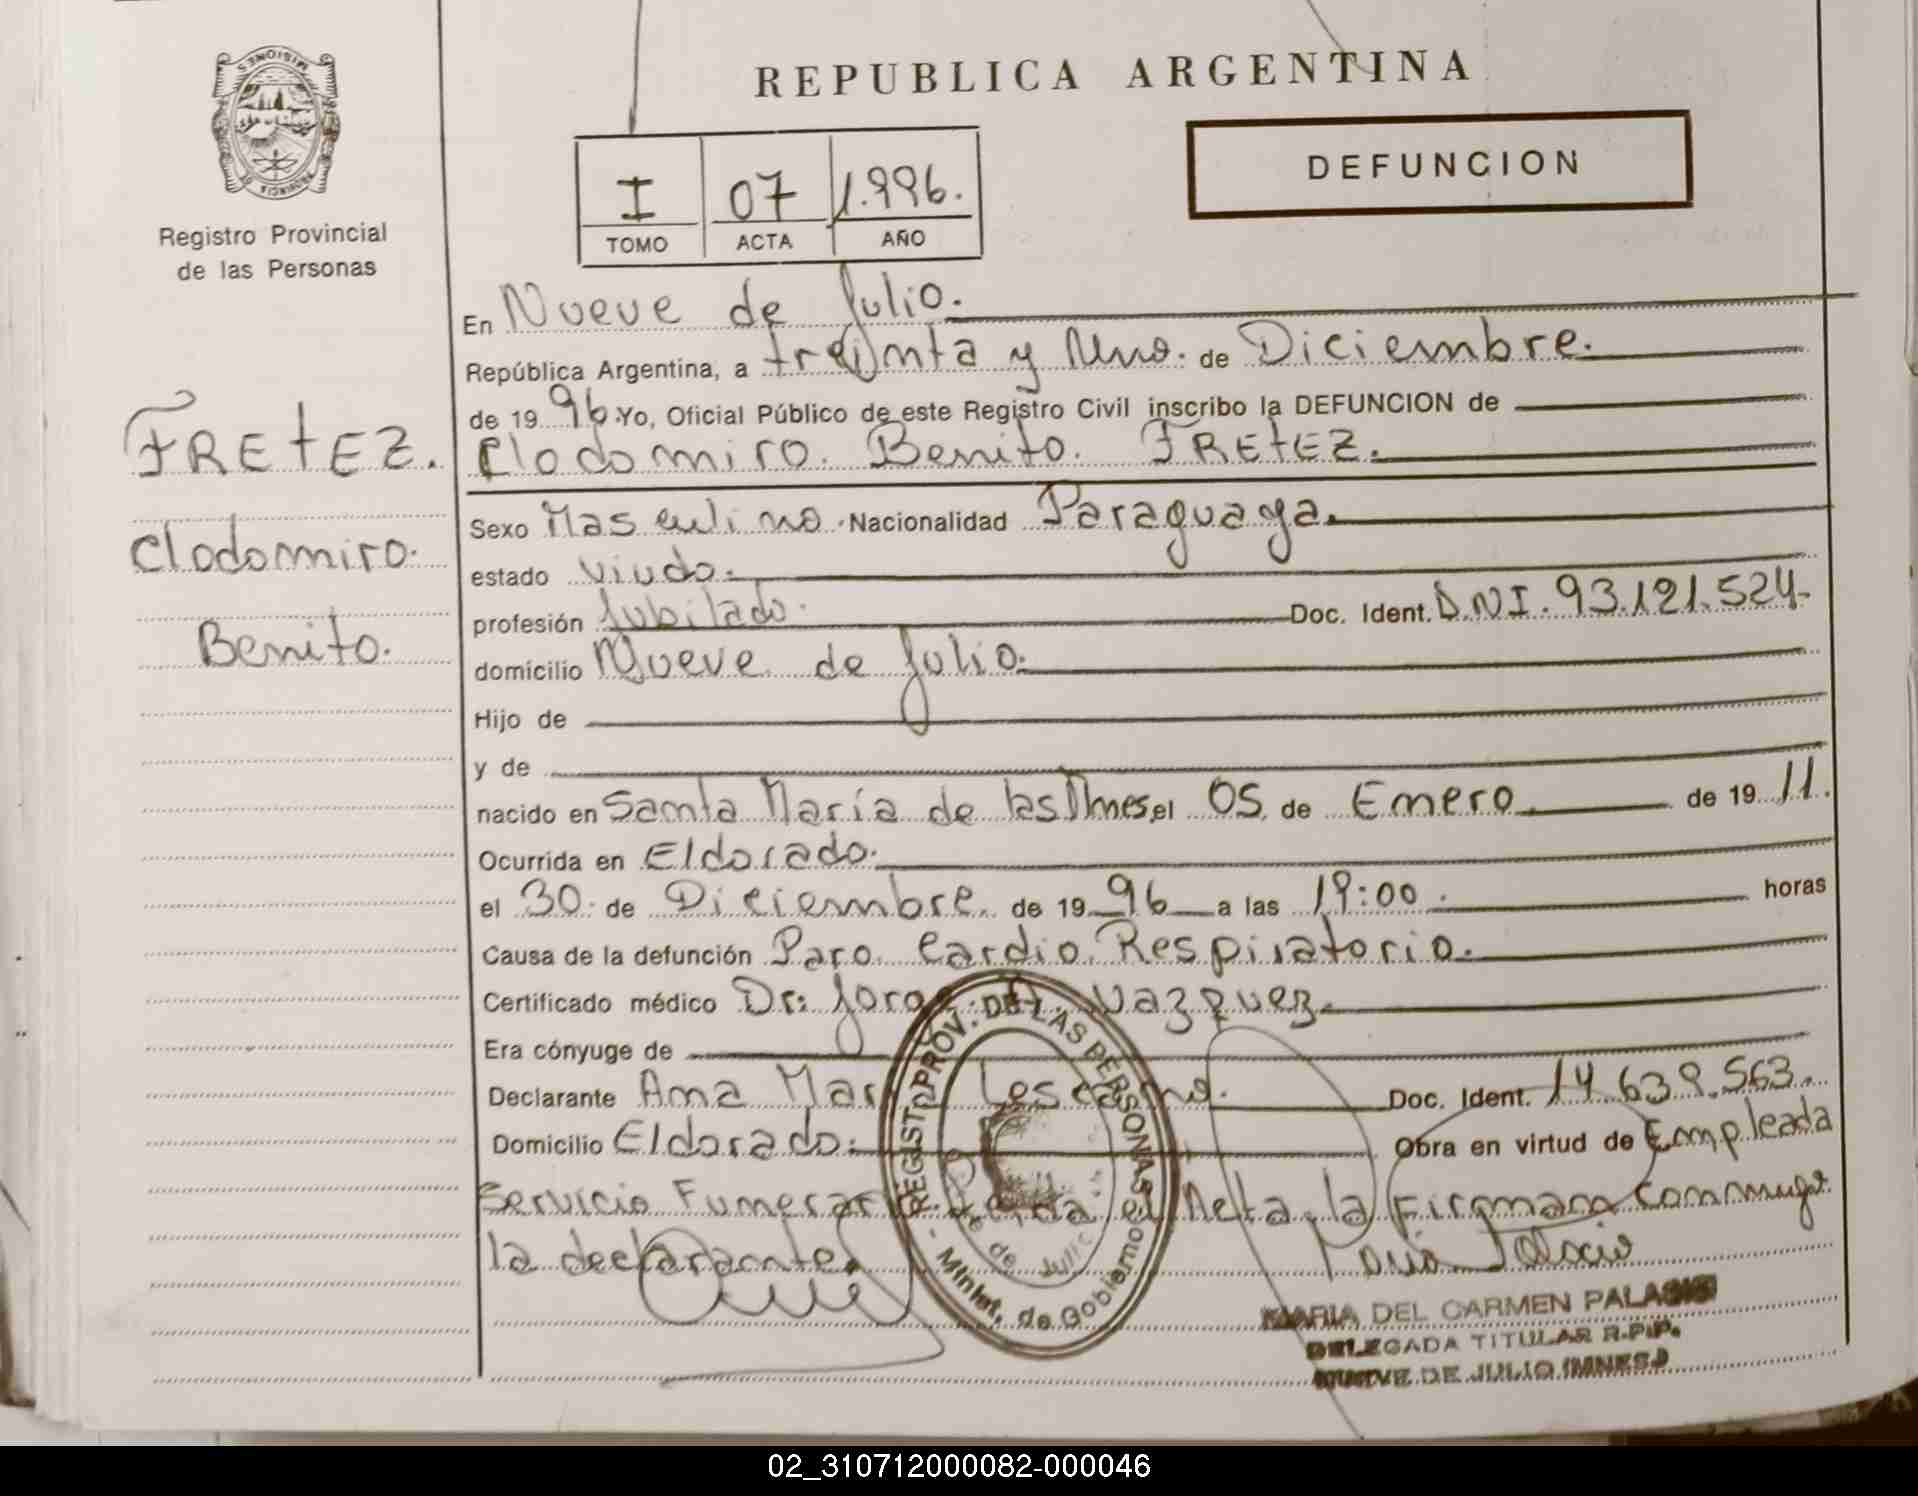 MISIONES
PROVINCIA DE
Registro Provincial
de las Personas
REPUBLICA ARGENTINA
DEFUNCION
I 07 1.996.
TOMO ACTA AÑO
FRETEZ.
Clodomiro.
Benito.
En Nueve de Julio.
República Argentina, a treinta y Uno. de Diciembre.
de 19 96. Yo, Oficial Público de este Registro Civil inscribo la DEFUNCION de
Clodomiro. Benito. FRETEZ.
Sexo Masculino. Nacionalidad Paraguaya.
estado Viudo.
profesión Jubilado. Doc. Ident. D.N.I. 93.121.524.
domicilio Nueve de Julio.
Hijo de
y de
nacido en Santa María de las el 05. de Enero. de 19 11.
Ocurrida en Eldorado.
el 30. de Diciembre. de 19 96 a las 19:00. horas
Causa de la defunción Paro Cardio Respiratorio.
Certificado médico Dr: Vazquez.
Era cónyuge de
Declarante Ana Doc. Ident. 14.639.563.
Domicilio Eldorado. Obra en virtud de Empleada
Servicio el Acta, la Firman conmigo
la declarante.
REGISTRO PROV. DE LAS PERSONAS
de Julio
Minist. de Gobierno
MARIA DEL CARMEN PALACIO
DELEGADA TITULAR R.P.P.
NUEVE DE JULIO (MNES.)
02_310712000082-000046